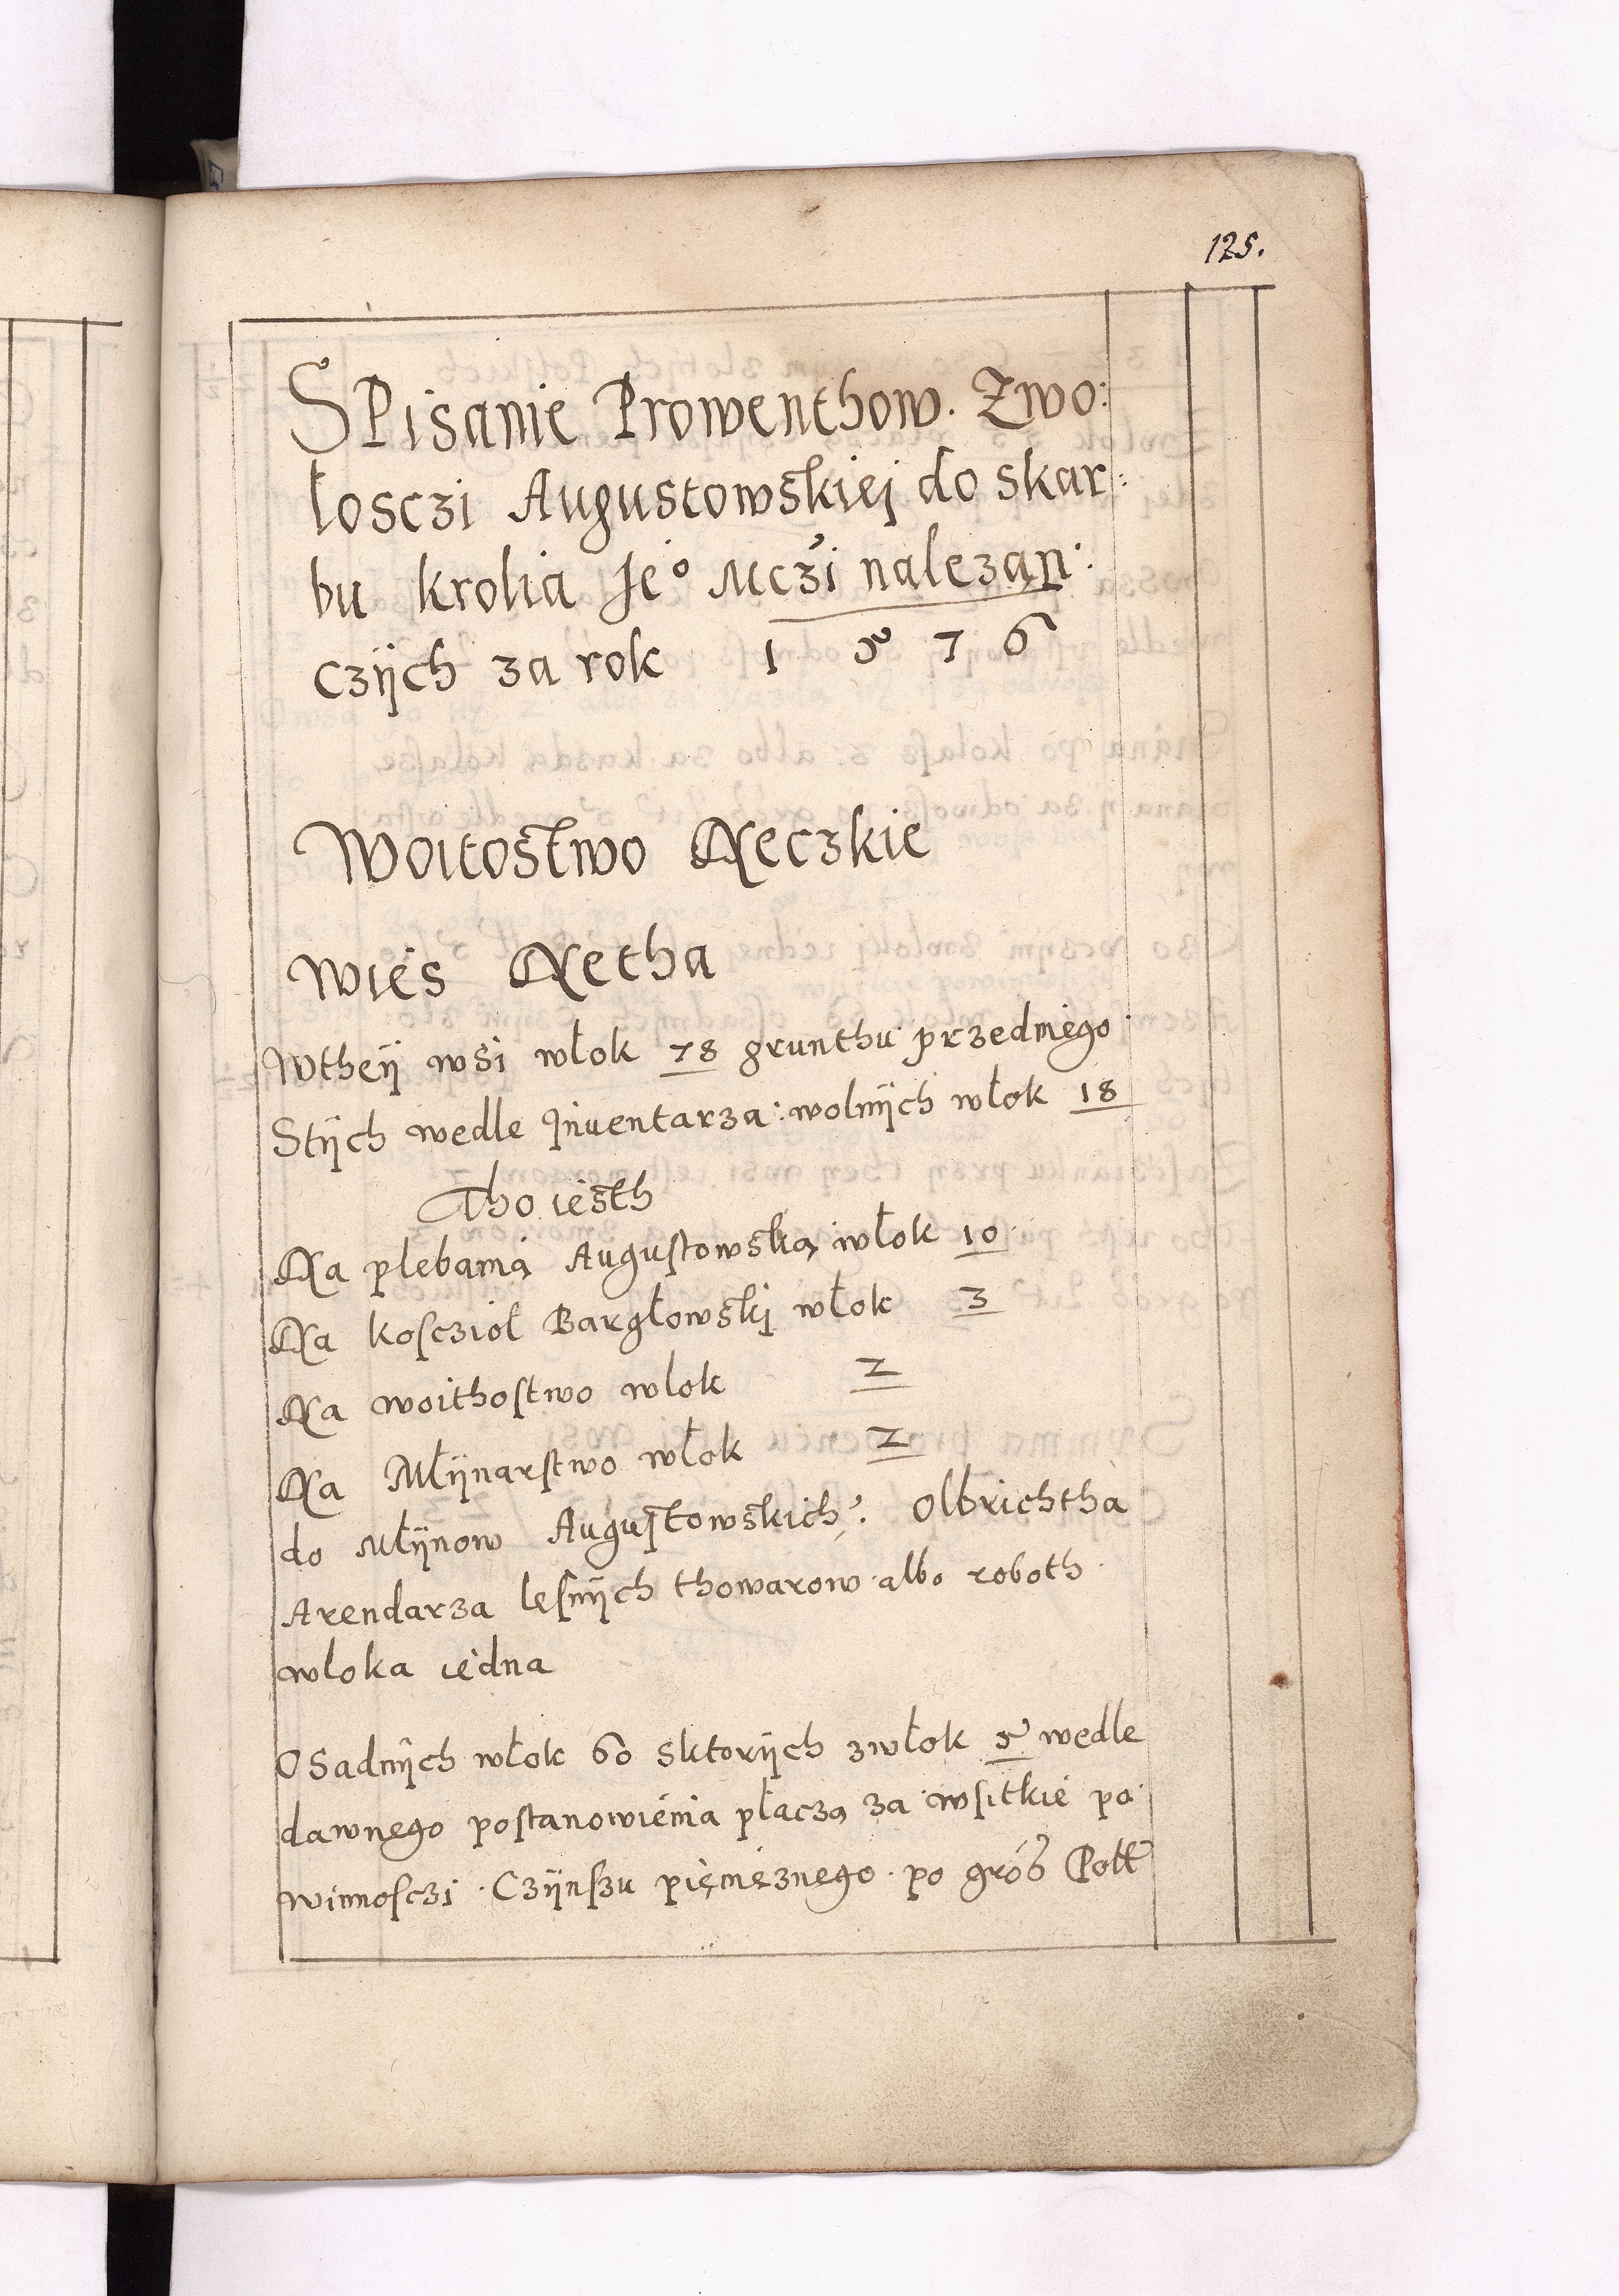 125.
SPisanie Prowenthow. Zwo:
losczi Augustowskiej do skar:
bu krolia Je° Mczi nalezan:
cżÿch za rok 1 5 7 6
Woitostwo Neczkie
Wies Netha
Wtheÿ wsi włok 78 grunthu przedniego
Stÿch wedle Jnuentarza: wolnÿch włok 18
Tho iesth
Na plebanią Augustowską włok 10
Na kosczioł Bargłowskj włok 3
Na woithostwo wlok 2
Na Młÿnarstwo włok 2
do Młÿnow Augustowskich: Olbrichtha
Arendarza lesnÿch thowarow albo roboth
wloka iedna
Osadnÿch włok 60 sktorÿch zwłok 5 wedle
dawnego postanowienia płaczą za wsitkie po
winnosczi. Czÿnszu pięnięznego. po grób Poll